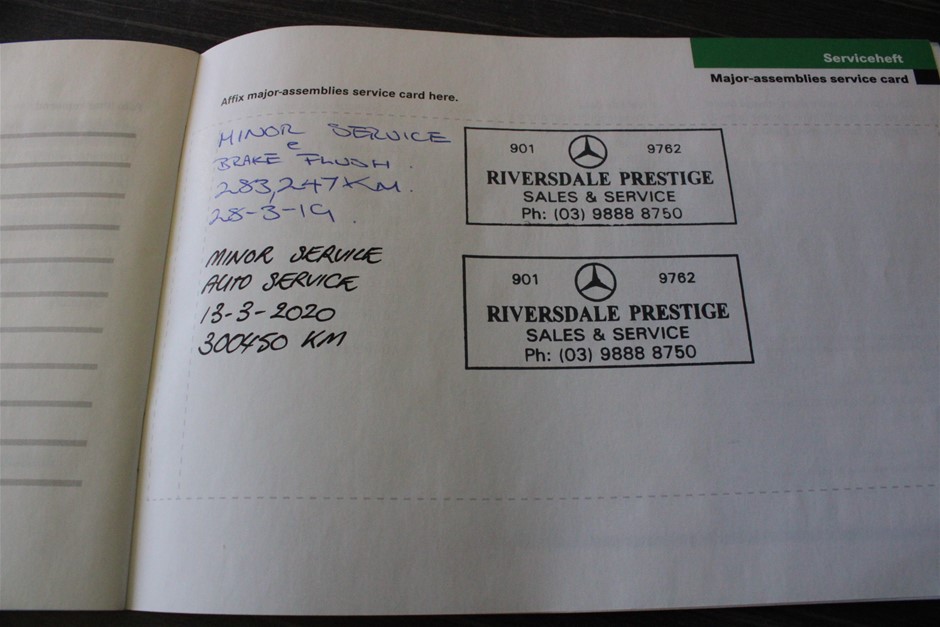 Serviceheft
Major-assemblies service card
Affix major-assemblies service card here.
MINOR SERVICE
e
BRAKE FLUSH.
283,247KM.
28-3-19.
901 9762
RIVERSDALE PRESTIGE
SALES & SERVICE
Ph: (03) 9888 8750
MINOR SERVICE
AUTO SERVICE
13-3-2020
300450 KM
901 9762
RIVERSDALE PRESTIGE
SALES & SERVICE
Ph: (03) 9888 8750